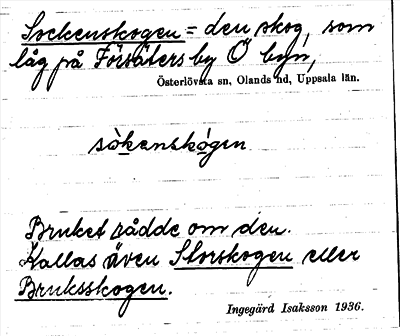 Sockenskogen = den skog, som
låg på Försäters by Ö byn,
Österlövsta sn, Olands hd, Uppsala län.
sòkenskógen
Bruket rådde om den.
Kallas även Storskogen eller
Bruksskogen.
Ingegärd Isaksson 1936.